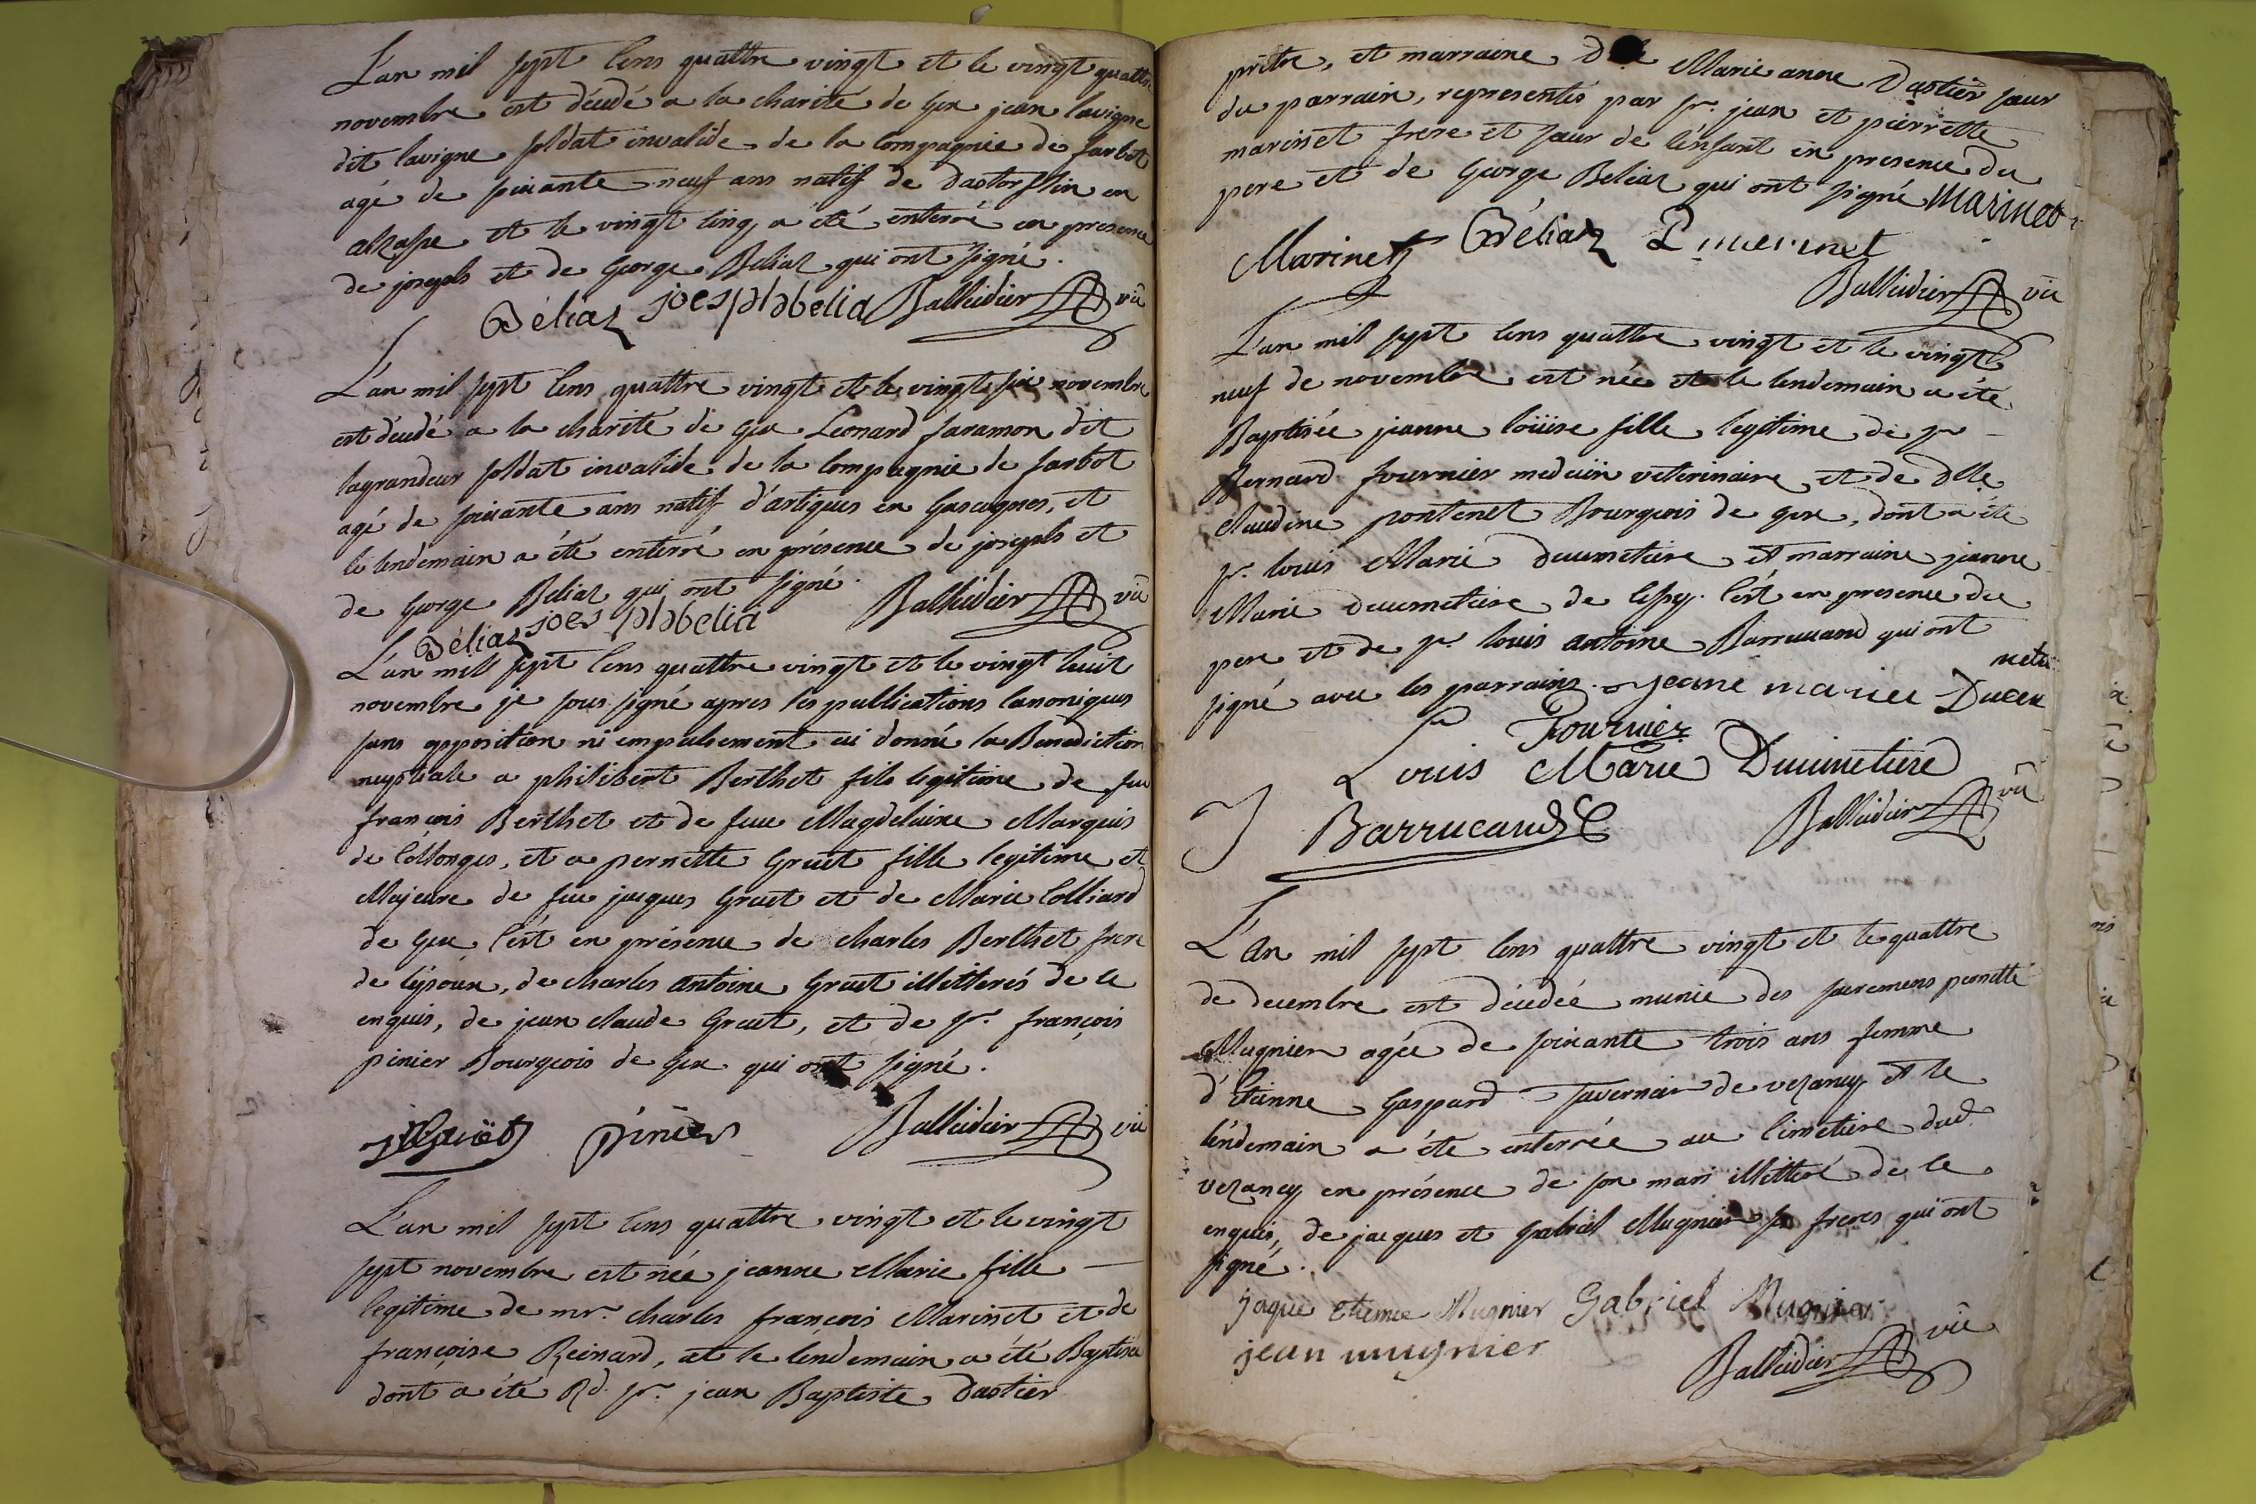 L'an mil sept cens quattre vingt et le vingt quattre
novembre est décedé a la charité de Gex jean lavigne
dit lavigne soldat invalide de la compagnie de farbot
agé de soixante neuf ans natif de dastorstin en
alzasse et le vingt cinq a été enterré en presence
de joseph et de George Béliaz qui ont signé.
Béliaz joesph belia Balleidier vic
L'an mil sept cens quattre vingt et le vingt six novembre
est décedé a la charité de Gex Léonard faramon dit
lagrandeur soldat invalide de la compagnie de farbot
agé de soixante ans natif d'artigues en Gascognes, et
le lendemain a été enterré en présence de joseph et
de George Béliaz qui ont signé. Balleidier vic
Béliaz joes ph belia
L'an mill sept cens quattre vingt et le vingt huit
novembre je sous signé apres les publications canoniques
sans opposition ni empechement ai donné la Benediction
nuptiale a philibert Berthet fils legitime de feu
françois Berthet et de feue Magdelaine Marquis
de Collonges, et a pernette Gruet fille legitime et
Majeure de feu jacques Gruet et de Marie Colliard
de Gex c'est en présence de charles Berthet frere
de l'epoux, de charles antoine Gruet illitterés de ce
enquis, de jean claude Gruet, et de sr. françois
pinier Bourgeois de Gex qui ont signé.
pinier Balleidier vic
L'an mil sept cens quattre vingt et le vingt
sept novembre est née jeanne Marie fille
legitime de mr. charles françois Marinet et de
françoise Reinard, et le lendemain a été Baptisée
dont a été Rd. sr. jean Baptiste dastier
prêtre, et marraine Marie anne dastier sœur
du parrain, representés par sr. jean et pierrette
marinet frere et sœur de l'enfant en presence du
pere et de George Béliaz qui ont signé Marinet
Marinet Béliaz P marinet
Balleidier vic
L'an mil sept cens quattre vingt et le vingt
neuf de novembre est née et le lendemain a été
Baptisée jeanne loüise fille legitime de sr
Bernard fournier medecin veterinaire et de dlle
claudine pontenet Bourgeois de gex, dont a été
sr. louis Marie ducimetiere et marraine jeanne
Marie ducimetiere de cessy. c'est en presence du
pere et de sr. louis antoine Barrucand qui ont
signé avec les parrains. jeane mariee Ducim
metie
Fournier
Louis Marie Ducimetiere
Barrucand Balleidier vic
L'an mil sept cens quattre vingt et le quattre
de decembre est décedée munie des sacremens pernette
Mugnier agée de soixante trois ans femme
d'Etienne Gaspard Tavernier de vezancy et le
lendemain a été enterrée au cimetiere dud.
vezancy en présence de son mari illitteré de ce
enquis, de jacques et Gabriel Mugnier ses freres qui ont
signé.
jaque etienne Mugnier Gabriel Mugnier
jean mugnier
Balleidier vic